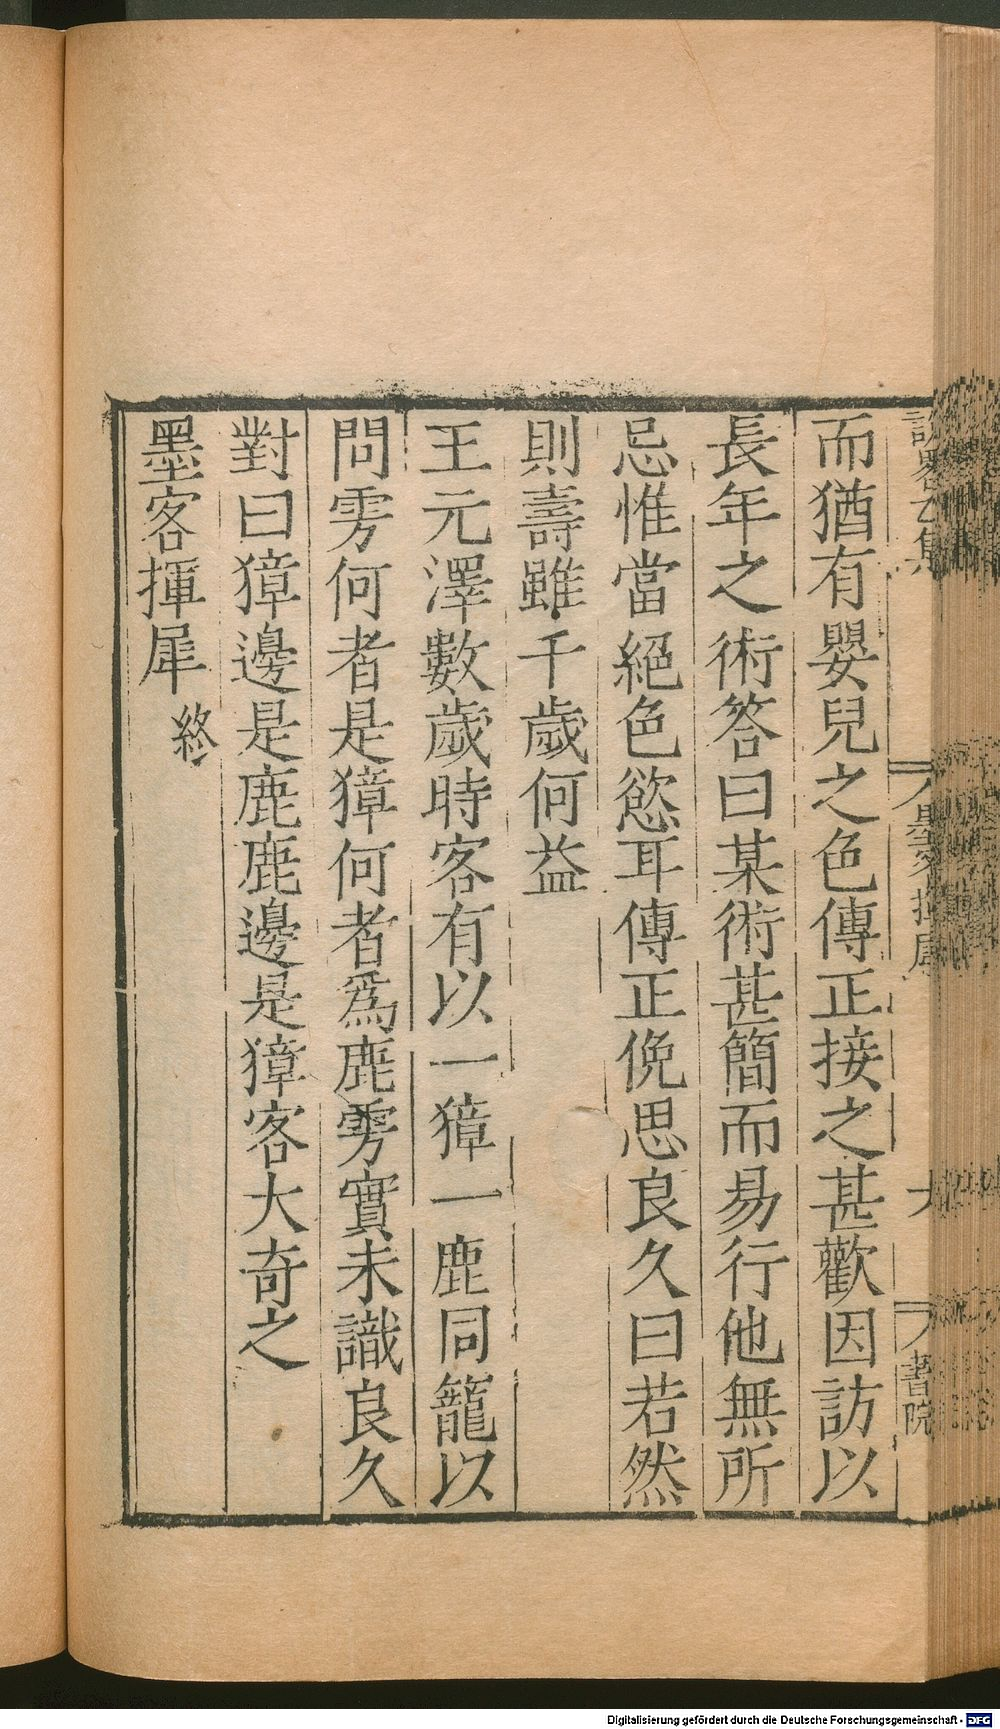 說畧乙集
墨客揮犀
書院
而猶有嬰兒之色傳正接之甚歡因訪以
長年之術答曰某術甚簡而易行他無所
忌惟當絕色慾耳傳正俛思良久曰若然
則壽雖千歲何益
王元澤數歲時客有以一獐一鹿同籠以
問雱何者是獐何者爲鹿雱實未識良久
對曰獐邊是鹿鹿邊是獐客大奇之
墨客揮犀 終
Digitalisierung gefördert durch die Deutsche Forschungsgemeinschaft - DFG